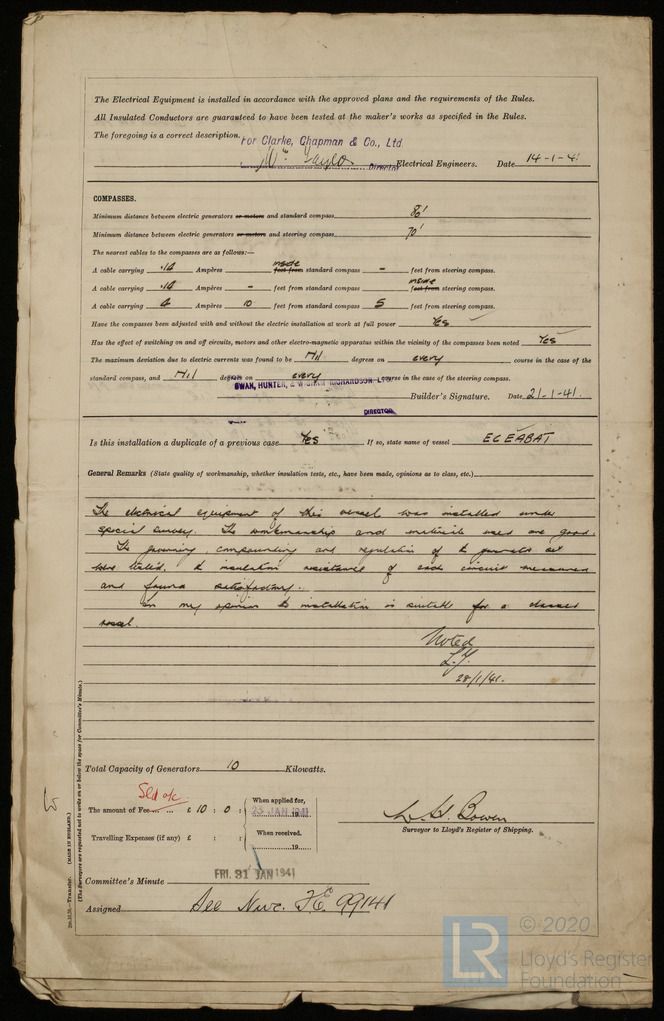 The Electrical Equipment is installed in accordance with the approved plans and the requirements of the Rules.
All Insulated Conductors are guaranteed to have been tested at the maker's works as specified in the Rules.
The foregoing is a correct description.
For Clarke, Chapman & Co., Ltd.
Director Electrical Engineers. Date 14-1-41
COMPASSES.
Minimum distance between electric generators or motors and standard compass 80'
Minimum distance between electric generators or motors and steering compass 70'
The nearest cables to the compasses are as follows:—
A cable carrying .14 Ampères inside feet from standard compass - feet from steering compass.
A cable carrying .14 Ampères - feet from standard compass inside feet from steering compass.
A cable carrying 4 Ampères 10 feet from standard compass 5 feet from steering compass.
Have the compasses been adjusted with and without the electric installation at work at full power Yes
Has the effect of switching on and off circuits, motors and other electro-magnetic apparatus within the vicinity of the compasses been noted Yes
The maximum deviation due to electric currents was found to be Nil degrees on every course in the case of the
standard compass, and Nil degrees on every course in the case of the steering compass.
SWAN, HUNTER, & WIGHAM RICHARDSON, LTD.
Builder's Signature. Date 21-1-41.
DIRECTOR
Is this installation a duplicate of a previous case Yes If so, state name of vessel ECEABAT
General Remarks (State quality of workmanship, whether insulation tests, etc., have been made, opinions as to class, etc.)
The electrical equipment of this vessel was installed under
special survey. The workmanship and materials used are good.
The governing, compounding and regulation of the generator set
were tested, the insulation resistance of each circuit measured
and found satisfactory.
In my opinion the installation is suitable for a classed
vessel.
Noted
28/1/41.
Total Capacity of Generators 10 Kilowatts.
The amount of Fee £ 10 : 0 :
When applied for,
23 JAN 1941
Travelling Expenses (if any) £ : :
When received.
19
Surveyor to Lloyd's Register of Shipping.
FRI. 31 JAN 1941
Committee's Minute
Assigned See Nwc. F.E. 99141
(MADE IN ENGLAND.)
(The Surveyors are requested not to write on or below the space for Committee's Minute.)
© 2020
LR
Lloyd's Register
Foundation